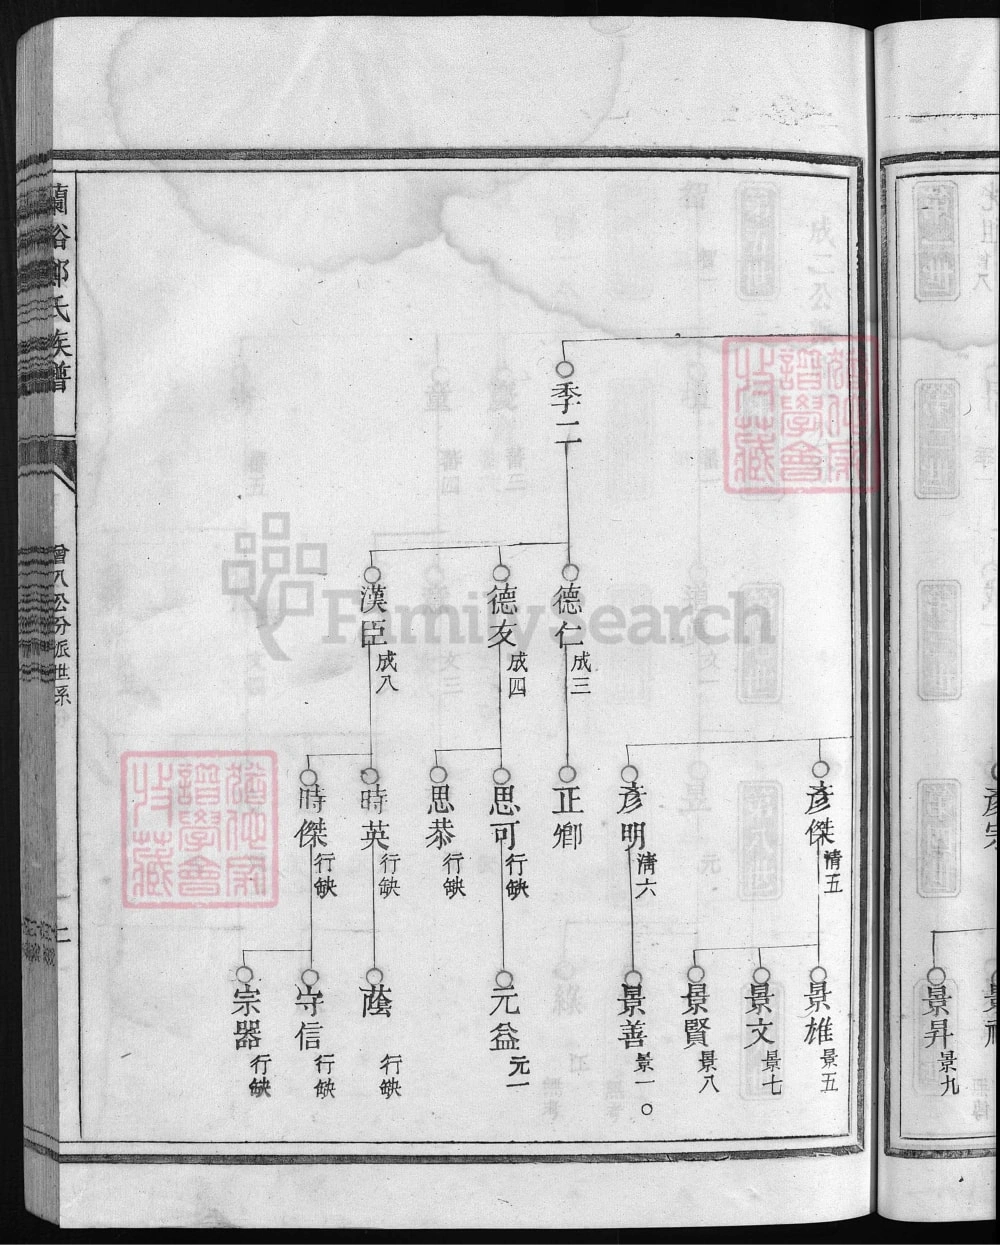 季二
德仁 成三
德友 成四
漢臣 成八
彥傑 情五
彥明 淸六
正鄉
思可 行缺
思恭 行缺
時英 行缺
時傑 行缺
景雄 景五
景文 景七
景賢 景八
景善 景一〇
元益 元一
蔭 行缺
守信 行缺
宗器 行缺
景昇 景九
蘭谷鄭氏族譜
曾八公分派世系
FamilySearch
譜學會